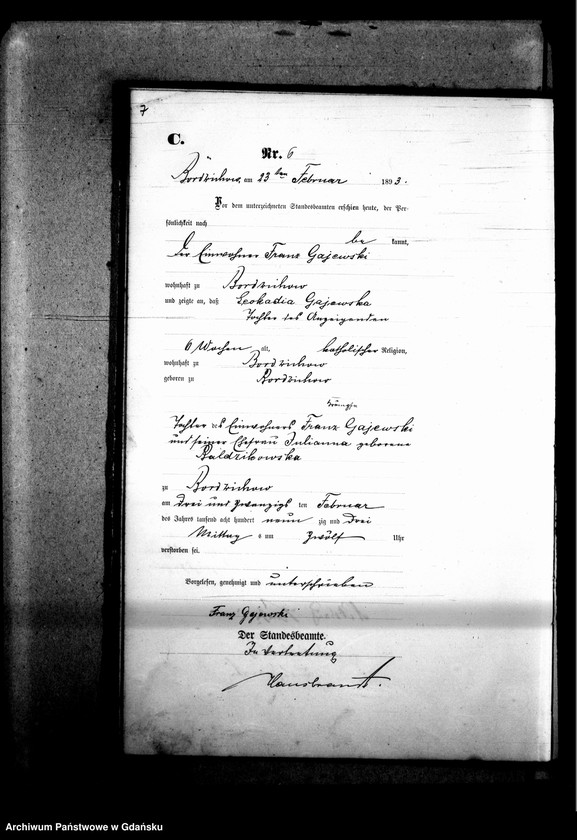 7
C.
Nr. 6
Bordzichow, am 23ten Februar 1893.
Vor dem unterzeichneten Standesbeamten erschien heute, der Per-
sönlichkeit nach
be kannt,
der Einwohner Franz Gajewski
wohnhaft zu Bordzichow
und zeigte an, daß Leokadia Gajewska
Tochter des Anzeigenden
6 Wochen alt, katholischer Religion,
wohnhaft zu Bordzichow
geboren zu Bordzichow
Krämpfe
Tochter des Einwohners Franz Gajewski
und seiner Ehefrau Julianna geborene
zu Bordzichow
am drei und zwanzigs ten Februar
des Jahres tausend acht hundert neun zig und drei
Mittag s um zwölf Uhr
verstorben sei.
Vorgelesen, genehmigt und unterschrieben
Franz Gajewski
Der Standesbeamte.
In Vertretung
Archiwum Państwowe w Gdańsku